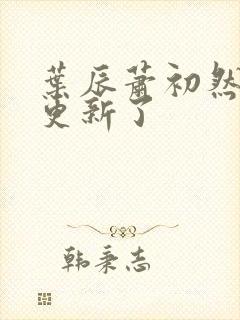 葉辰蕭初然
更新了
韩秉志